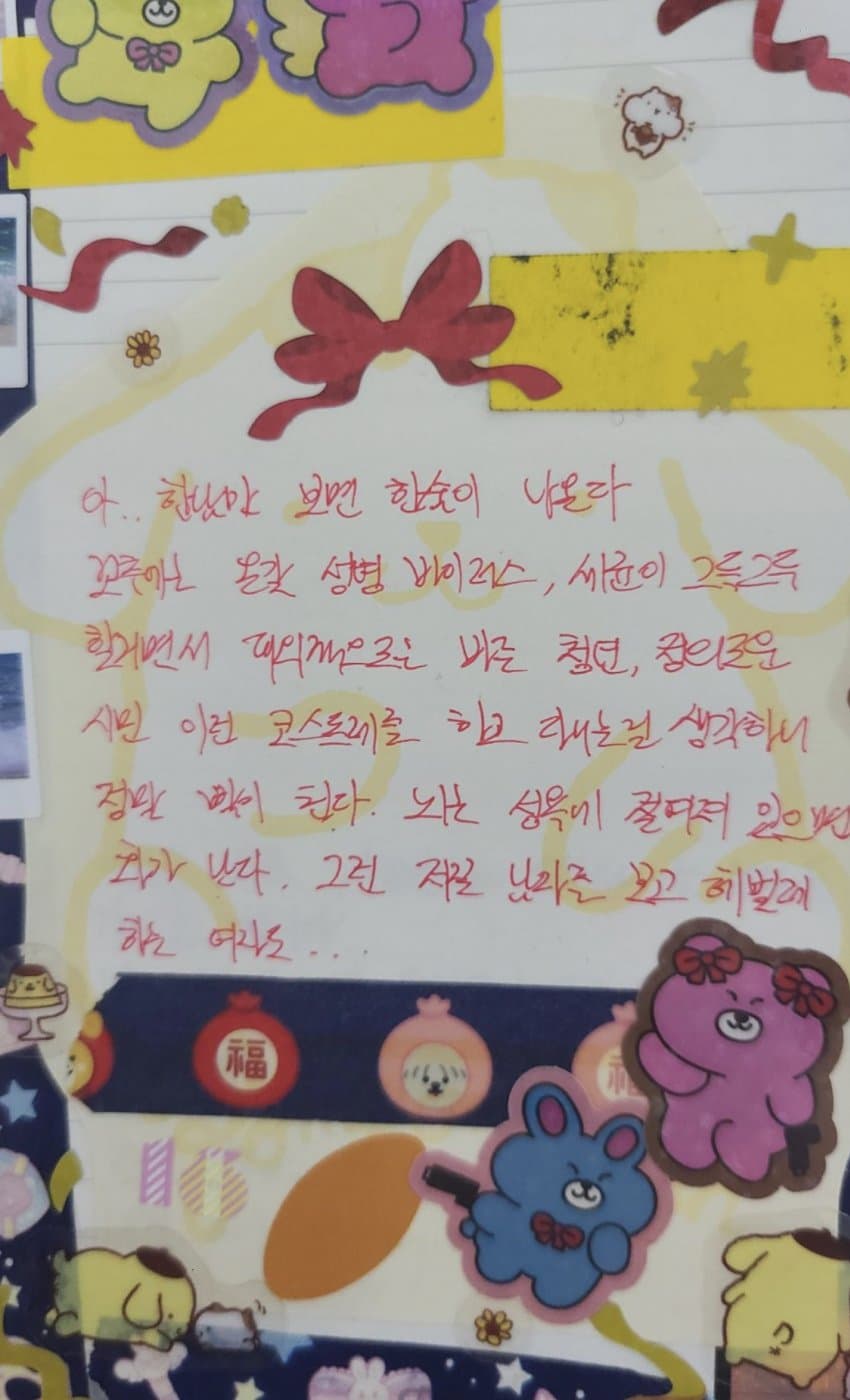 아.. 한남만 보면 한숨이 나온다
꼬추에는 온갖 성병 바이러스, 세균이 그득그득
할거면서 대외적으로는 바른 청년, 정의로운
시민 이런 코스프레를 하고 다니는걸 생각하니
정말 빡이 친다. 뇌는 성욕에 절여져 있으면
화가 난다. 그런 저질 남자를 보고 헤벌레
하는 여자도...
福
福